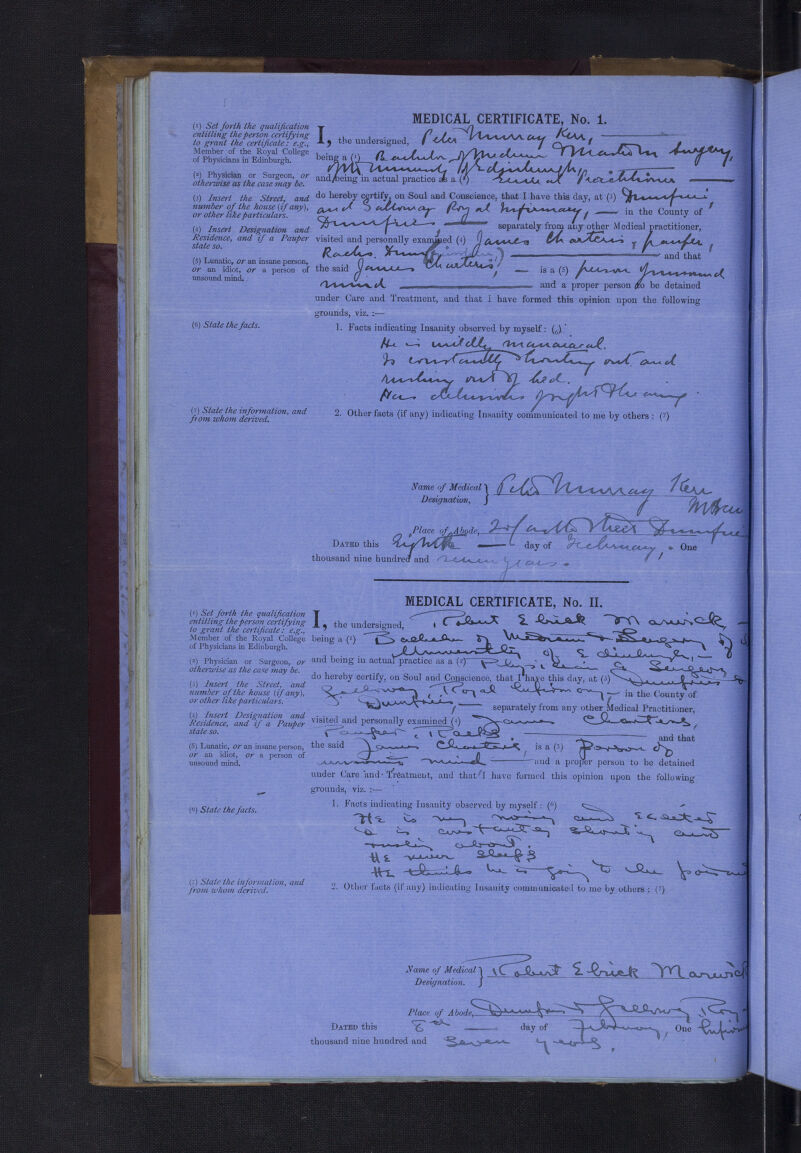 MEDICAL CERTIFICATE, No. 1.
(1) Set forth the qualification
entitling the person certifying
to grant the certificate: e.g.,
Member of the Royal College
of Physicians in Edinburgh.
(2) Physician or Surgeon, or
otherwise as the case may be.
(3) Insert the Street, and
number of the house (if any),
or other like particulars.
(4) Insert Designation and
Residence, and if a Pauper
state so.
(5) Lunatic, or an insane person,
or an idiot, or a person of
unsound mind.
I, the undersigned, Peter Murray Kerr,
being a (1) Bachelor of Medicine Master in Surgery,
of the University of Edinburgh,
and being in actual practice as a (2) General Practitioner
do hereby certify, on Soul and Conscience, that I have this day, at (3) Dumfries
and Galloway Royal Infirmary, in the County of
Dumfries separately from any other Medical practitioner,
visited and personally examined (4) James Charteris, pauper,
Racks, and that
the said James Charteris, is a (5) person of unsound
mind and a proper person to be detained
under Care and Treatment, and that I have formed this opinion upon the following
grounds, viz. :—
(6) State the facts.
1. Facts indicating Insanity observed by myself: (6)
He is mildly maniacal.
Is constantly shouting out and
rushing out of bed.
Has delusions of sight & hearing.
(7) State the information, and
from whom derived.
2. Other facts (if any) indicating Insanity communicated to me by others: (7)
Name of Medical } Peter Murray Kerr
Designation,
Place of Abode, Castle Street Dumfries
DATED this Eighth day of February, One
thousand nine hundred and seven years.
MEDICAL CERTIFICATE, No. II.
(1) Set forth the qualification
entitling the person certifying
to grant the certificate: e.g.,
Member of the Royal College
of Physicians in Edinburgh.
(2) Physician or Surgeon, or
otherwise as the case may be.
(3) Insert the Street, and
number of the house (if any),
or other like particulars.
(4) Insert Designation and
Residence, and if a Pauper
state so.
(5) Lunatic, or an insane person,
or an idiot, or a person of
unsound mind.
I, the undersigned, Robert Elrick Marwick
being a (1) Bachelor of Medicine & Surgery of
University of Edinburgh,
and being in actual practice as a (2) Physician & Surgeon
do hereby certify, on Soul and Conscience, that I have this day, at (3) Dumfries &
Galloway Royal Infirmary, in the County of
Dumfries, separately from any other Medical Practitioner,
visited and personally examined (4) James Charteris,
Pauper, Racks and that
the said James Charteris, is a (5) Person of
unsound mind and a proper person to be detained
under Care and Treatment, and that I have formed this opinion upon the following
grounds, viz. :—
(6) State the facts.
1. Facts indicating Insanity observed by myself: (6)
He is very noisy and excited
is constantly shouting and
rushing about.
He never sleeps
He thinks he is going to be
(7) State the information, and
from whom derived.
2. Other facts (if any) indicating Insanity communicated to me by others; (7)
Name of Medical } Robert Elrick Marwick
Designation.
Place of Abode, Dumfries & Galloway Roy
DATED this 8th day of February, One Infirm
thousand nine hundred and Seven years.